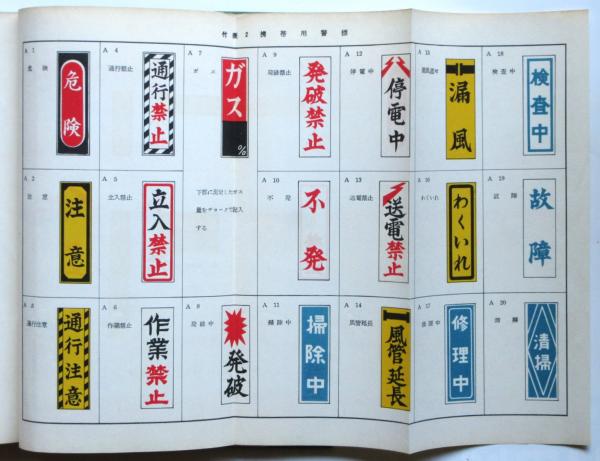 付表 2 携帯用警標
A 1
危険
危険
A 4
通行禁止
通行禁止
A 7
ガス
ガス
%
A 9
発破禁止
発破禁止
A 12
停電中
停電中
A 15
漏風
A 18
検査中
検査中
A 2
注意
注意
A 5
立入禁止
立入禁止
下部に測定したガス
量をチョークで記入
する
A 10
不発
不発
A 13
送電禁止
送電禁止
A 16
わくいれ
わくいれ
A 19
故障
故障
A 3
通行注意
通行注意
A 6
作業禁止
作業禁止
A 8
発破中
発破
A 11
掃除中
掃除中
A 14
風管延長
風管延長
A 17
修理中
修理中
A 20
清掃
清掃